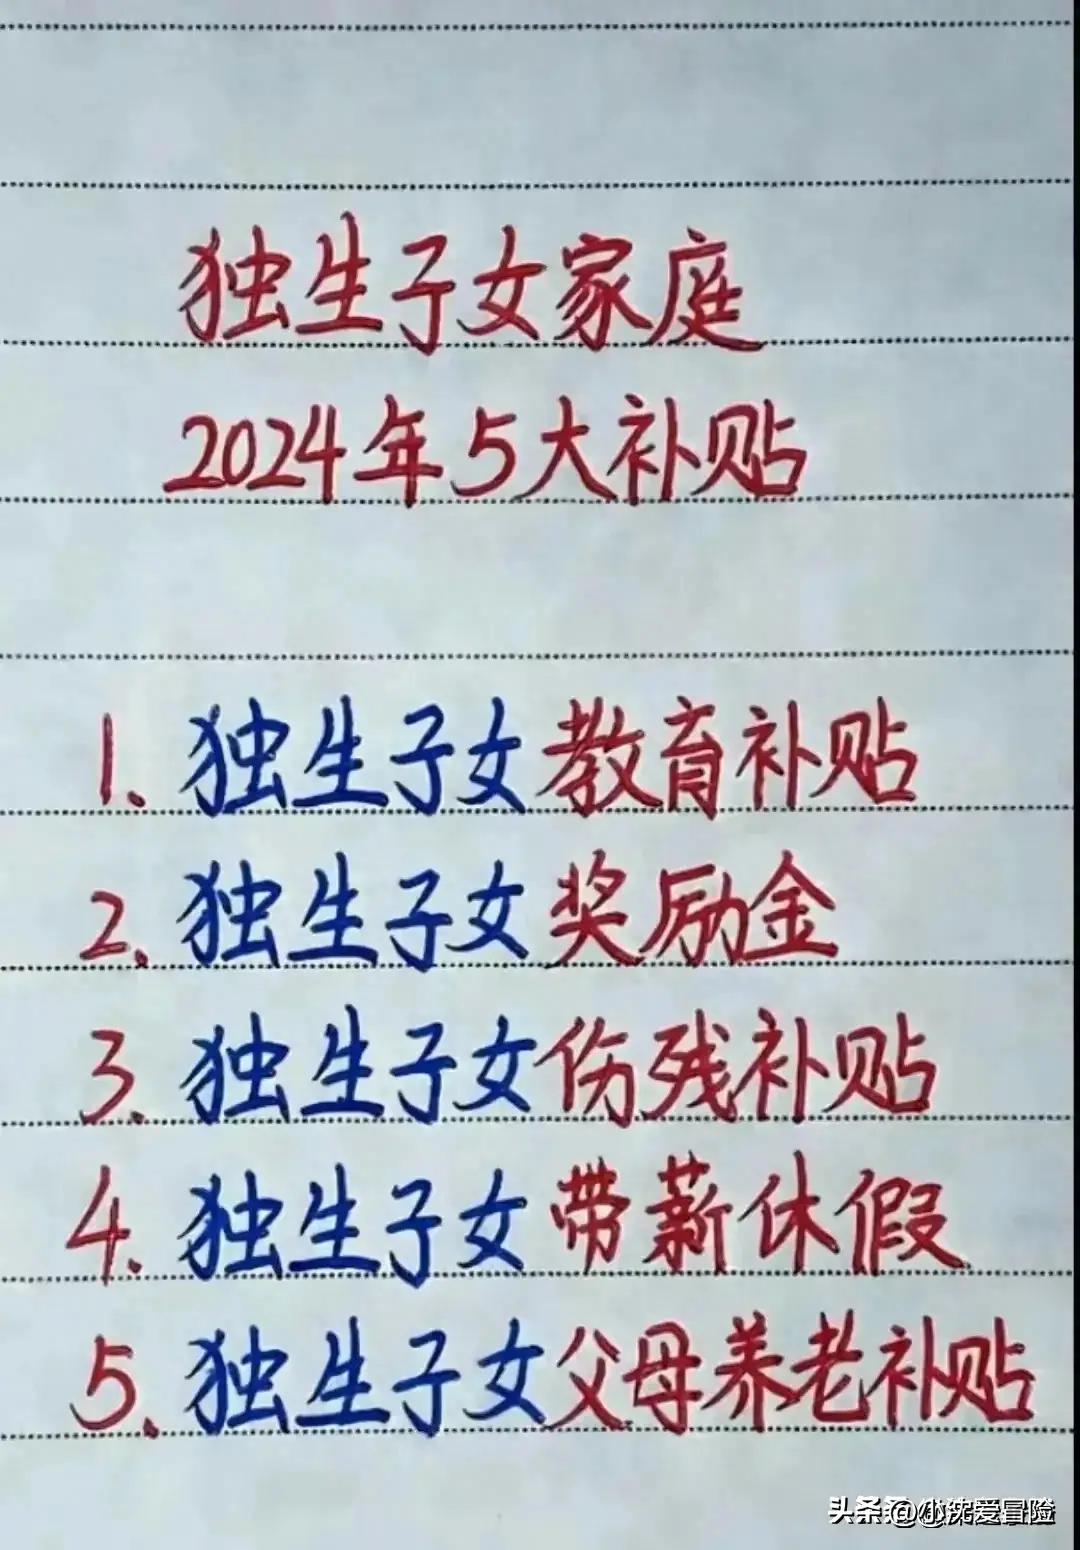 独生子女家庭
2024年5大补贴
1.独生子女教育补贴
2.独生子女奖励金
3.独生子女伤残补贴
4.独生子女带薪休假
5.独生子女父母养老补贴
头条 @小沈爱冒险